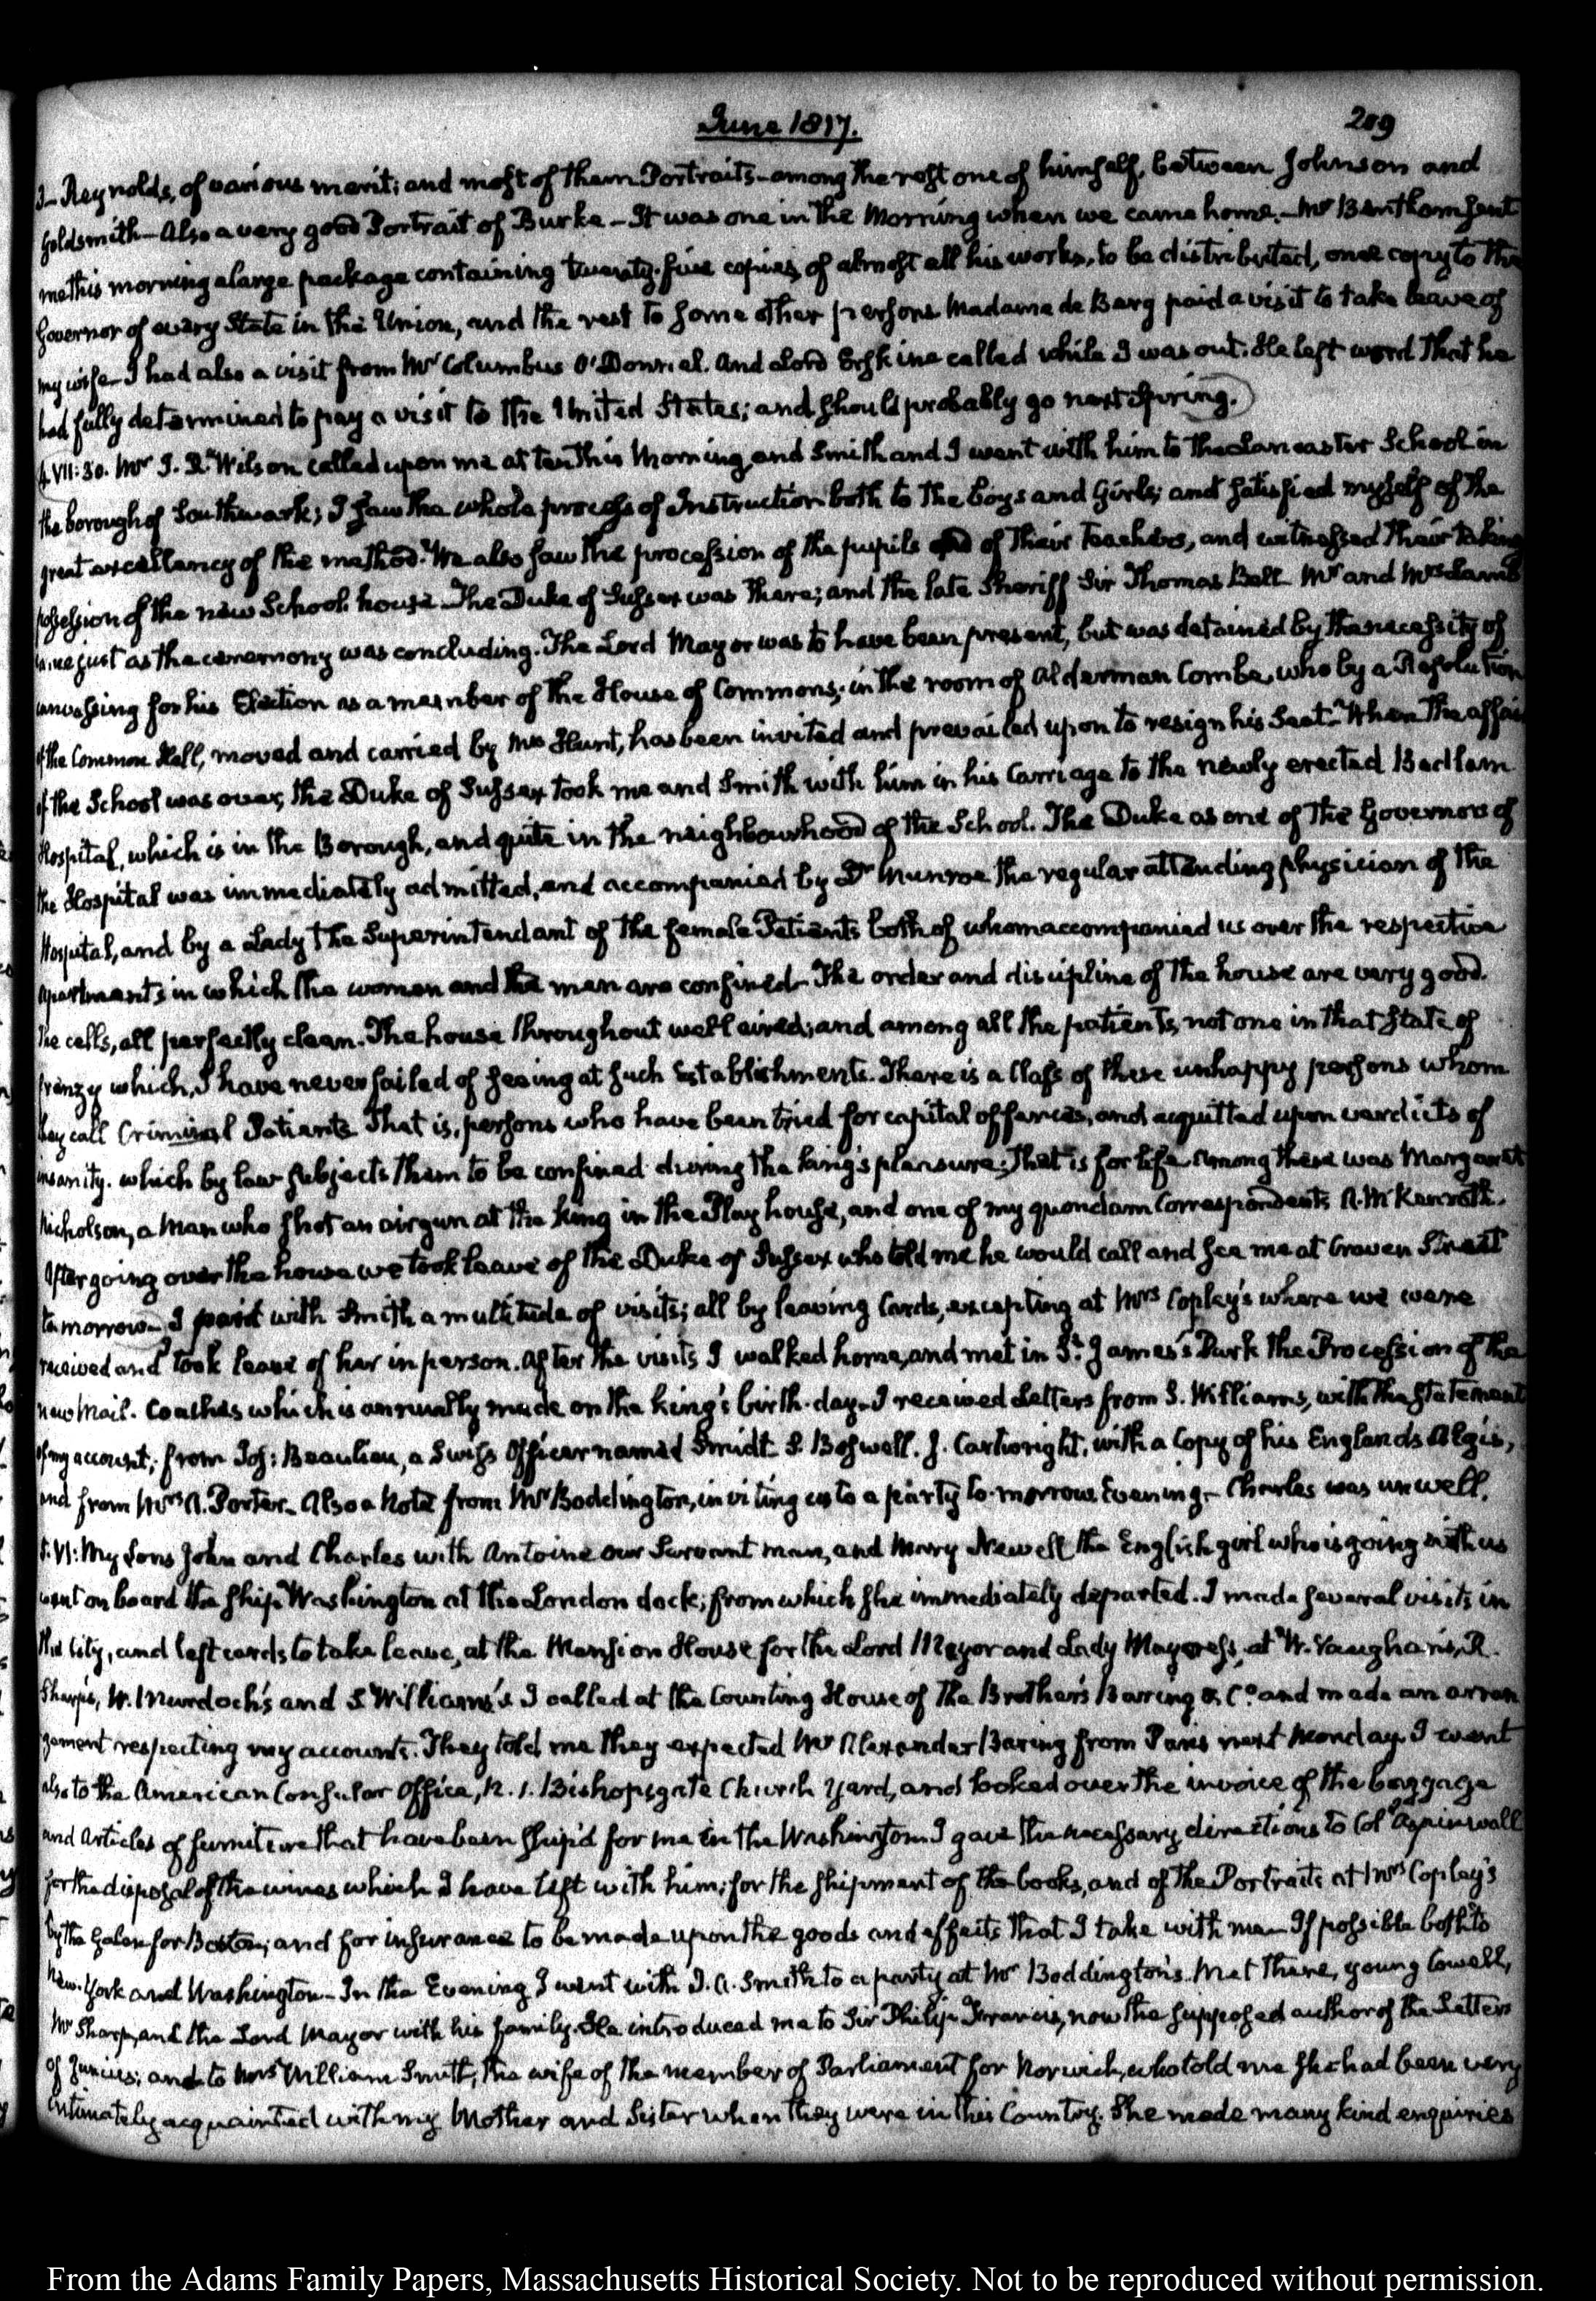 June 1817.
209
J— Reynolds, of various merit; and most of them Portraits—among the rest one of himself, between Johnson and
Goldsmith—Also a very good Portrait of Burke—It was one in the Morning when we came home.—Mr Bentham sent
me this morning a large package containing twenty-five copies, of almost all his works, to be distributed, one copy to the
Governor of every State in the Union, and the rest to some other persons Madame de Berg paid a visit to take leave of
my wife—I had also a visit from Mr Columbus O'Donnel. And Lord Erskine called while I was out. He left word that he
had fully determined to pay a visit to the United States; and should probably go next Spring.
4. VII:30. Mr J. B. Wilson called upon me at ten this Morning, and Smith and I went with him to the Lancaster School in
the borough of Southwark; I saw the whole process of Instruction both to the boys and Girls; and satisfied myself of the
great excellency of the method. We also saw the procession of the pupils and of their teachers, and witnessed their taking
possession of the new School house. The Duke of Sussex was there; and the late Sheriff Sir Thomas Bell Mr and Mrs Lamb
came just as the ceremony was concluding. The Lord Mayor was to have been present, but was detained by the necessity of
canvassing for his Election as a member of the House of Commons; in the room of Alderman Combe, who by a Resolution
of the Common Hall, moved and carried by Mr Hunt, has been invited and prevailed upon to resign his Seat. When the affair
of the School was over, the Duke of Sussex took me and Smith with him in his Carriage to the newly erected Bedlam
Hospital, which is in the Borough, and quite in the neighbourhood of the School. The Duke as one of the Governors of
the Hospital was immediately admitted, and accompanied by Dr Munroe the regular attending physician of the
Hospital, and by a Lady the Superintendant of the female Patients both of whom accompanied us over the respective
apartments in which the women and the men are confined—The order and discipline of the house are very good.
The cells, all perfectly clean. The house throughout well aired; and among all the patients, not one in that state of
frenzy which, I have never failed of seeing at such Establishments. There is a Class of these unhappy persons whom
they call Criminal Patients That is, persons who have been tried for capital offences, and acquitted upon verdicts of
insanity. which by law subjects them to be confined during the king's pleasure; that is for life. Among these was Margaret
Nicholson, a Man who shot an airgun at the King in the Play house, and one of my quondam Correspondents R. McKenroth.
After going over the house we took leave of the Duke of Sussex who told me he would call and see me at Craven Street
tomorrow—I paid with Smith a multitude of visits; all by leaving Cards, excepting at Mrs Copley's where we were
received and took leave of her in person. After the visits I walked home, and met in St. James's Park the Procession of the
new Mail-Coaches which is annually made on the king's birth-day. I received Letters from S. Williams, with the statement
of my account; from Jos: Beaulieu, a Swiss Officer named Smidt—S. Boswell. J. Cartwright, with a Copy of his Englands Ægis,
and from Mrs A. Porter—Also a Note from Mr Boddington, inviting us to a party to-morrow Evening.—Charles was unwell.
5. VI: My Sons John and Charles with Antoine our Servant man, and Mary Newell the English girl who is going with us
went on board the ship Washington at the London dock; from which she immediately departed. I made several visits in
the City, and left cards to take leave, at the Mansion House for the Lord Mayor and Lady Mayoress, at W. Vaughan's, R.
Sharp's, W. Murdoch's and S. Williams's I called at the Counting House of the Brothers Baring & Co. and made an arran
gement respecting my accounts. They told me they expected Mr Alexander Baring from Paris next Monday. I went
also to the American Consular Office, N. 1. Bishopsgate Church Yard, and looked over the invoice of the baggage
and Articles of furniture that have been shipp'd for me in the Washington. I gave the necessary directions to Col. Aspinwall
for the disposal of the wines which I have left with him; for the shipment of the books, and of the Portraits at Mrs Copley's
by the Galen for Boston; and for insurance to be made upon the goods and effects that I take with me—If possible both to
New-York and Washington—In the Evening I went with J. A. Smith to a party at Mr Boddington's. Met there, young Lowell,
Mr Sharp, and the Lord Mayor with his family. He introduced me to Sir Philip Francis, now the supposed author of the Letters
of Junius; and to Mrs William Smith, the wife of the member of Parliament for Norwich, who told me she had been very
intimately acquainted with my Mother and Sister when they were in this Country. She made many kind enquiries
From the Adams Family Papers, Massachusetts Historical Society. Not to be reproduced without permission.